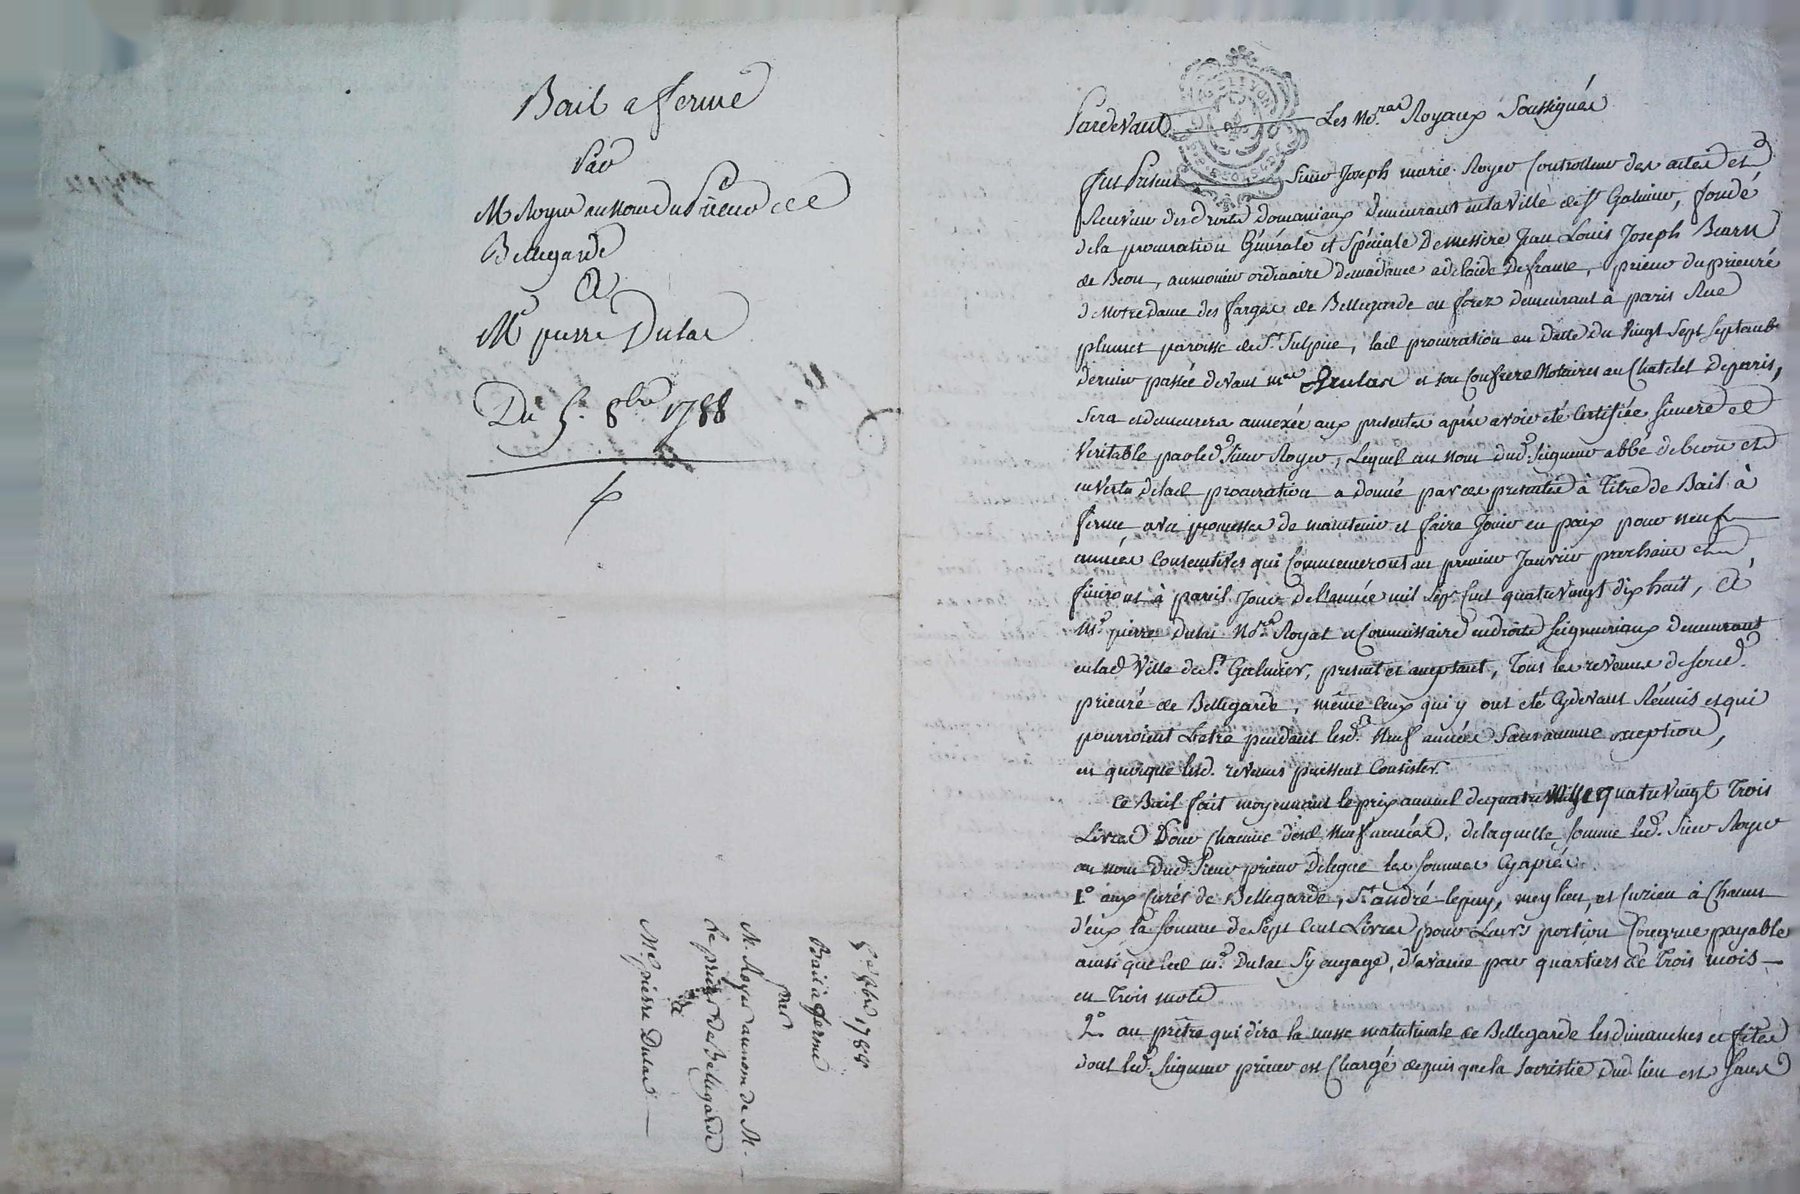 Bail a ferme
Par
Mr Royer au nom du Prieur de
Bellegarde
A
Me pierre Dulac
Du 5. 8bre 1788
5e 8bre 1788
Bail à ferme
par
Mr Royer au nom de Mr
Le prieur de Bellegarde
à
Me pierre Dulac
Pardevant Les No.res Royaux Soussignés
fut Present Sieur Joseph marie Royer Controlleur des actes et
Receveur des droits Domaniaux demeurant en la ville de St Galmier, fondé
de la procuration Générale et Spéciale de Messire Jean Louis Joseph Bearn
de Beon, aumonier ordinaire de madame adelaide de france, prieur du prieuré
de Notre dame des farges de Bellegarde en forez demeurant à paris Rue
plumet paroisse de St Sulpice, lad procuration en datte du vingt Sept Septemb.
dernier passée devant mes et son Confrere Notaires au Chatelet de paris,
Sera et demeurera annexée aux presentes après avoir été Certifiée Sincere et
Veritable par led. Sieur Royer, Lequel au nom dud. Seigneur abbé de beon et
en vertu de lad procuration a donné par ces presentes à Titre de Bail à
ferme avec promesse de maintenir et faire Jouir en paix pour neuf
années Consecutives qui Commenceront au premier Janvier prochain et
finiront à pareil Jour de l'année mil Sept Cent quatre vingt dix huit, A
Me pierre dulac No.re Royal et Commissaire en droits Seigneuriaux demeurant
en lad Ville de St Galmier, present et acceptant, Tous les revenus de Sond.
prieuré de Bellegarde, même Ceux qui y ont été Cy devant Réunis et qui
pourroient L'etre pendant lesd. Neuf années Sans aucune exception,
en quoique lesd. revenus puissent Consister.
Ce Bail fait moyennant le prix annuel de quatre Mille quatre Vingt Trois
Livres Pour Chacune desd. Neuf années, de laquelle somme led. Sieur Royer
au nom Dud. Sieur prieur Delegue les sommes Cy après.
1o aux Curés de Bellegarde, St andré lepuy, meylieu, et Cuzieu à Chacun
d'eux la somme de Sept Cent Livres pour Leurs portion Congrue payable
ainsi que led me. Dulac S'y engage, d'avance par quartiers de Trois mois
en Trois mois
2o au prêtre qui dira la messe matutinale de Bellegarde les dimanches et fêtes
dont led. Seigneur prieur est Chargé depuis que la Sacristie Dud. lieu est Sans